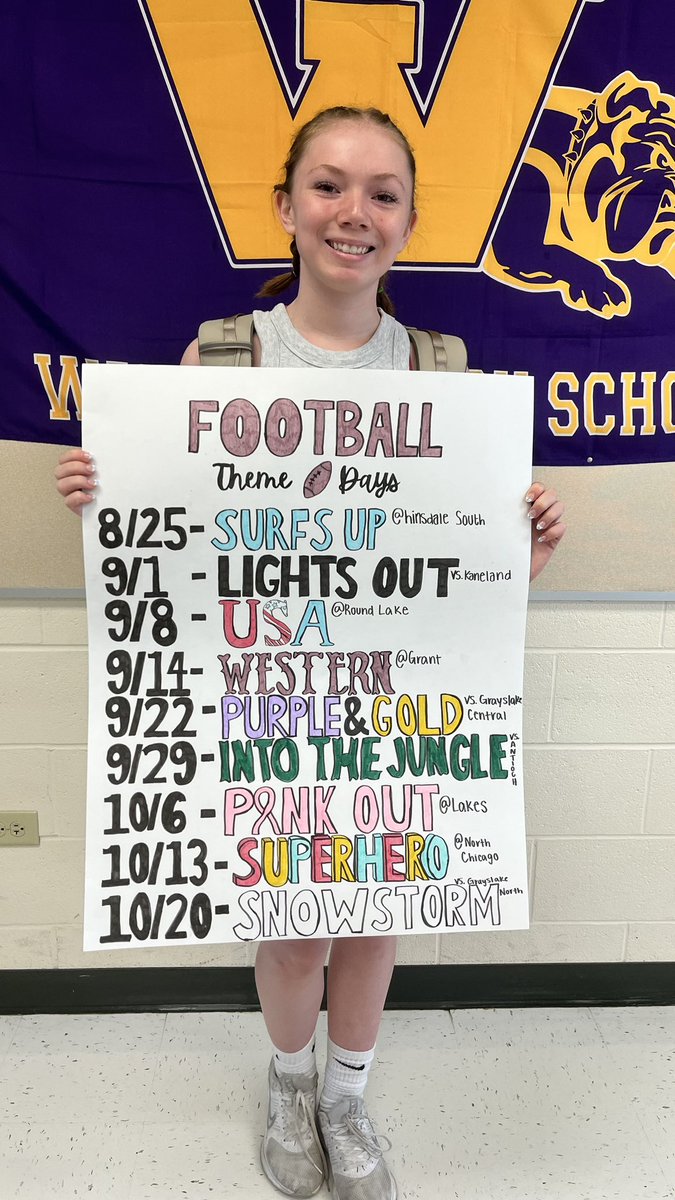 W
W
SCHO
FOOTBALL
Theme Days
8/25- SURFS UP @hinsdale South
9/1 - LIGHTS OUT vs. Kaneland
9/8- USA @Round Lake
9/14- WESTERN @Grant
9/22- PURPLE & GOLD vs. Grayslake Central
9/29- INTO THE JUNGLE vs. ANTIOCH
10/6- PINK OUT @Lakes
10/13- SUPERHERO @North Chicago
10/20- SNOWSTORM vs. Grayslake North